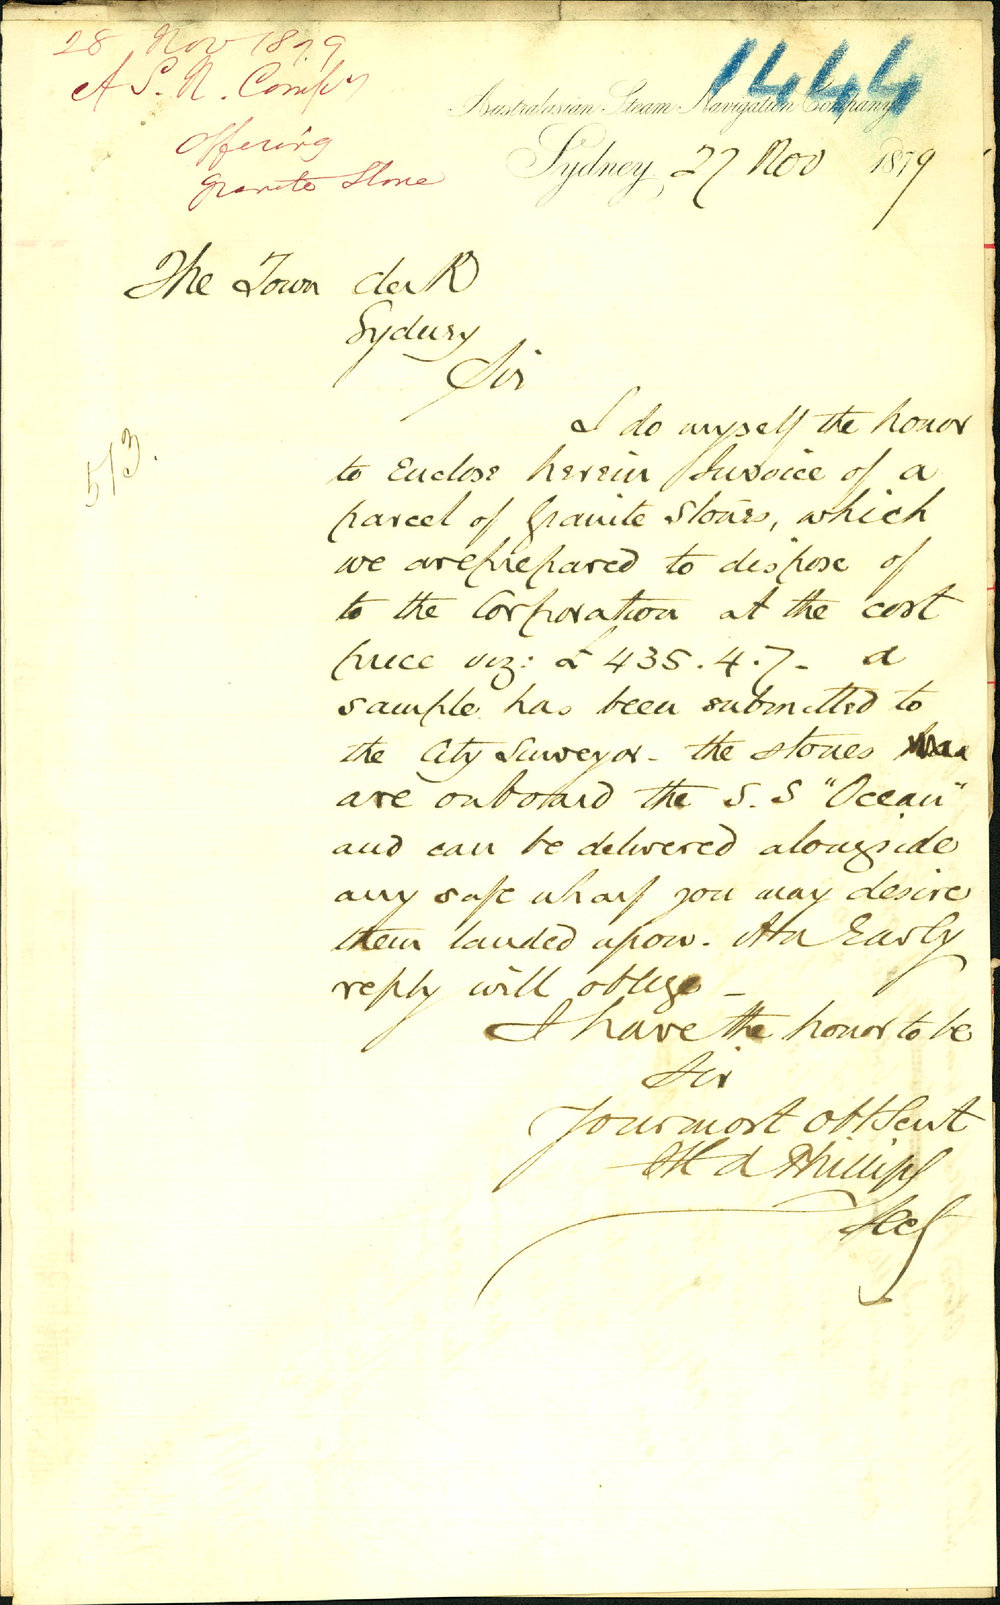 28 Nov 1879
A. S. N. Compy
Offering
Granite Stone
1444
Australasian Steam Navigation Company
Sydney, 27 Nov 1879
The Town Clerk
Sydney
Sir
573.
I do myself the honor
to Enclose herein Invoice of a
parcel of Granite Stones, which
we are prepared to dispose of
to the Corporation at the cost
price viz: £435.4.7- a
sample has been submitted to
the City Surveyor - the stones
are onboard the S.S "Ocean"
and can be delivered alongside
any safe wharf you may desire
them landed upon. An Early
reply will oblige -
I have the honor to be
Sir
Your most obt Sevt
Phillips
Secy